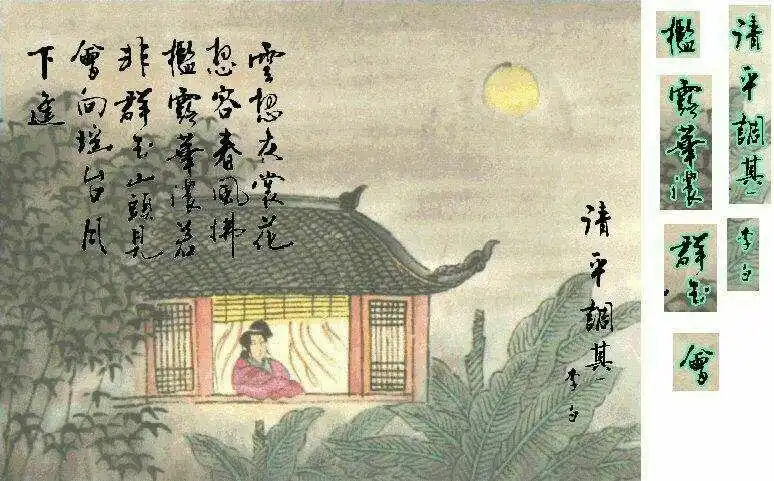 雲想衣裳花
想容春風拂
檻露華濃若
非群玉山頭見
會向瑤台月
下逢
清平調其一
李白
清平調其一
李白
檻
露華濃
群玉
會